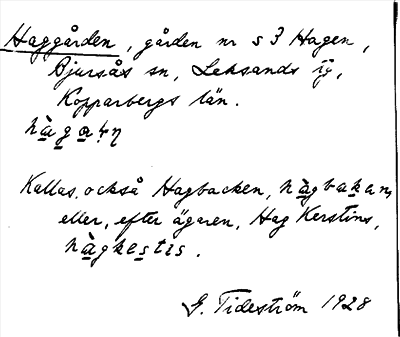 Haggården, gården nr s 3 Hagen,
Bjursås sn, Leksands tg,
Kopparbergs län.
hà̱ga̱ṛṇ
Kallas också Hagbacken, hà̱gba̱ka̱n,
eller, efter ägaren, Hag Kerstins,
hà̱gkes̱tis.
G. Tideström 1928